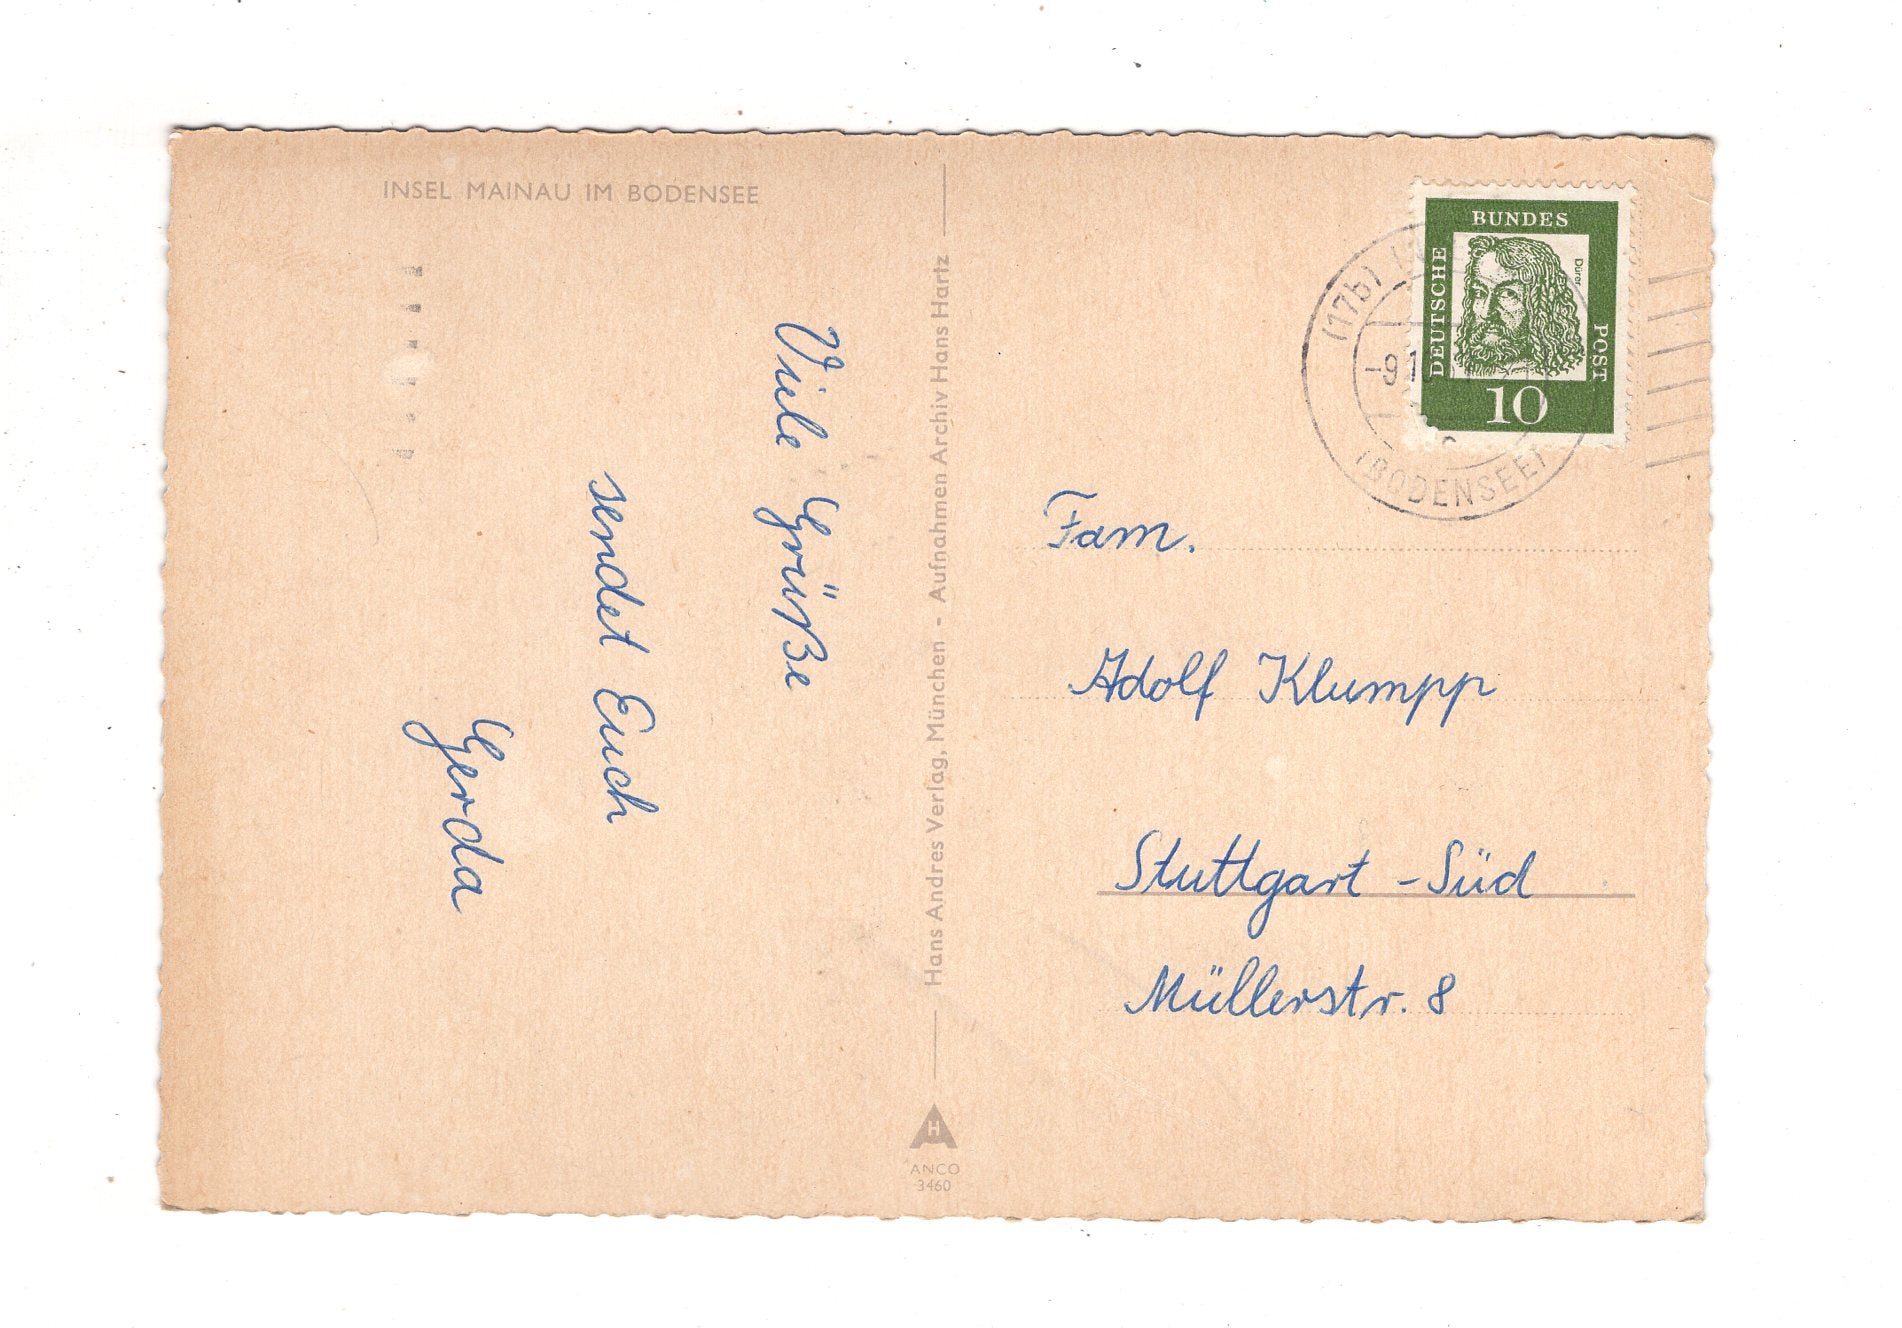 INSEL MAINAU IM BODENSEE
Viele Grüße
sendet Euch
Gerda
Hans Andres Verlag, München - Aufnahmen Archiv Hans Hartz
H
ANCO
3460
DEUTSCHE
BUNDES
POST
Dürer
10
(17b)
-9.1
(BODENSEE)
Fam.
Adolf Klumpp
Stuttgart-Süd
Müllerstr. 8